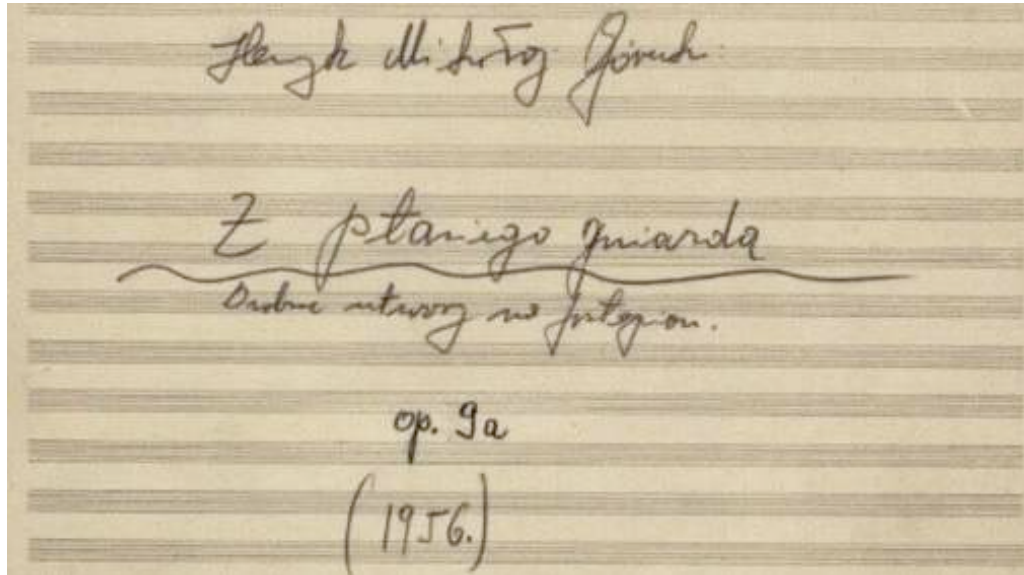 Henryk Mikołaj Górecki
Z ptasiego gniazda
Drobne utwory na fortepian.
op. 9a
(1956.)